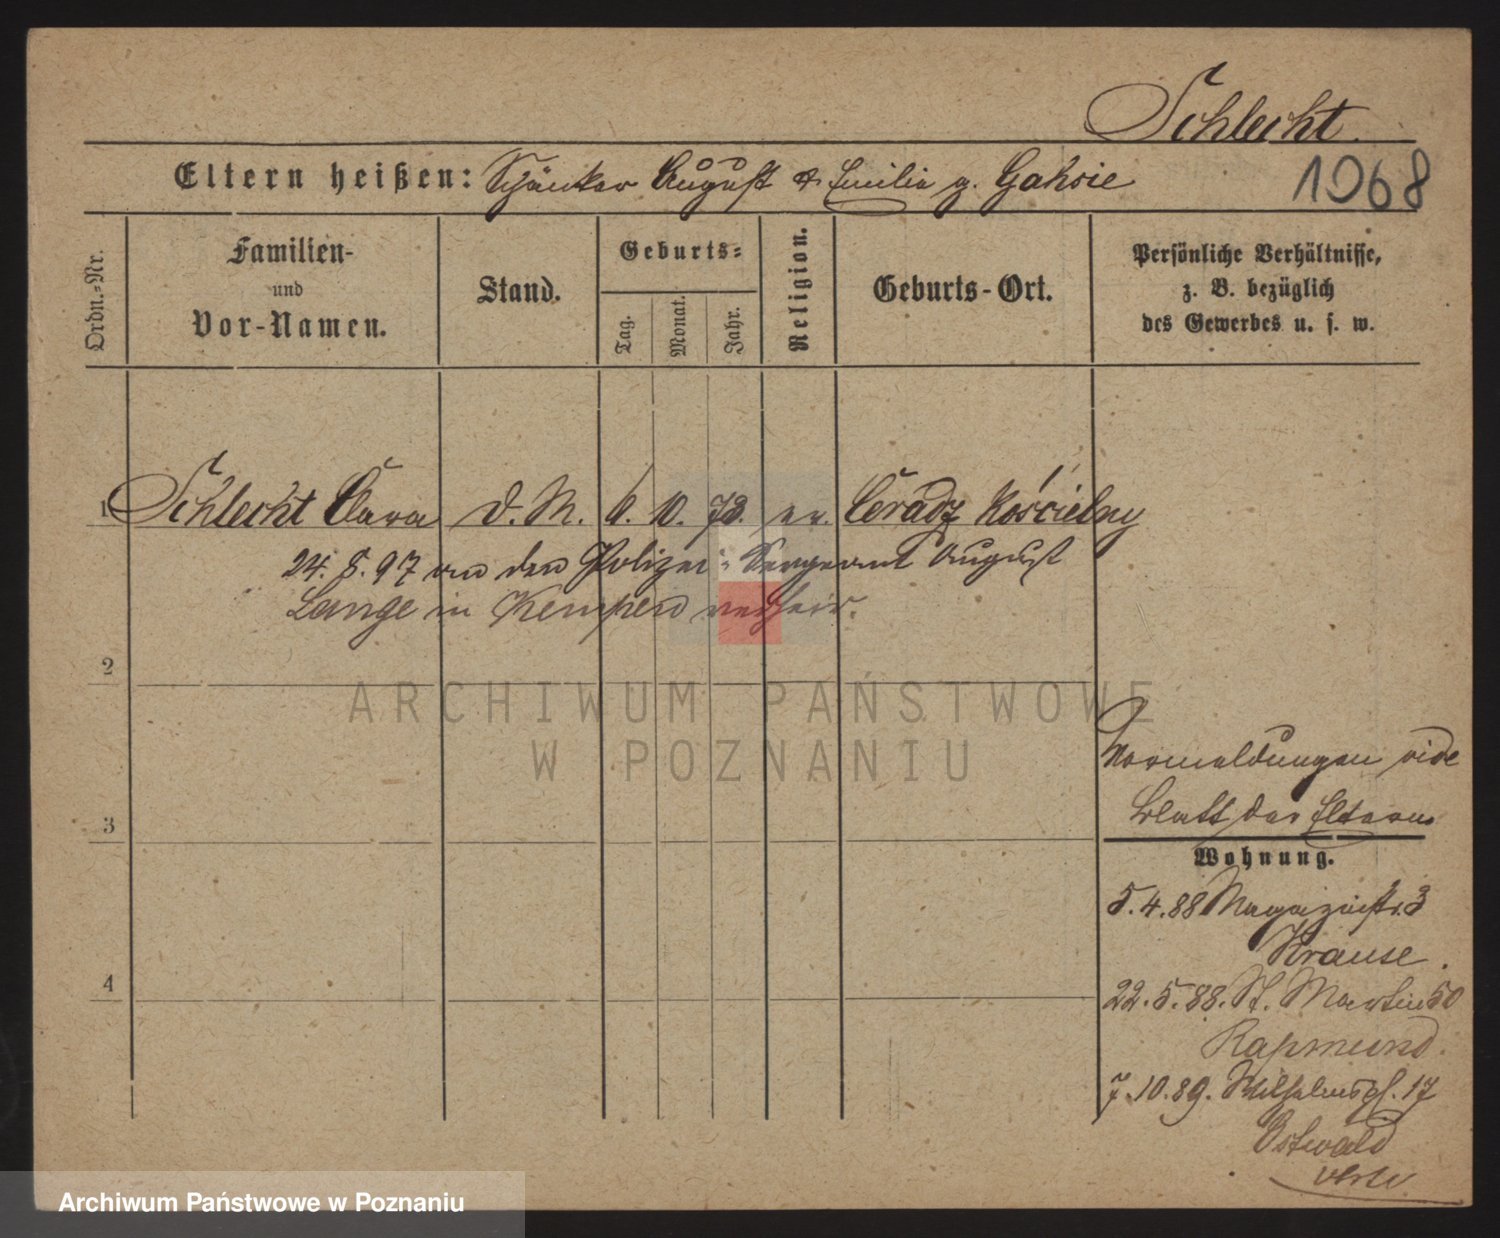 Schlecht.
Eltern heißen: Schänker August & Emilie g.
1068
Ordn.-Nr.
Familien-
und
Vor-Namen.
Stand.
Geburts-
Tag.
Monat.
Jahr.
Religion.
Geburts-Ort.
Persönliche Verhältnisse,
z. B. bezüglich
des Gewerbes u. s. w.
1 Schlecht Clara D. M. 6. 10. ev. Ceradz Kościelny
24. 8. 97 an den Polizei-Sergeant August
Lange in Kempen verheir.
2
ARCHIWUM PAŃSTWOWE
W POZNANIU
Vormeldungen vide
Blatt der Eltern
3
Wohnung.
5.4.88 Magazinstr. 3
Krause.
4
22.5.88. St. Martin 50
Rapmund.
7.10.89. Wilhelmspl. 17
Ostwald
Archiwum Państwowe w Poznaniu